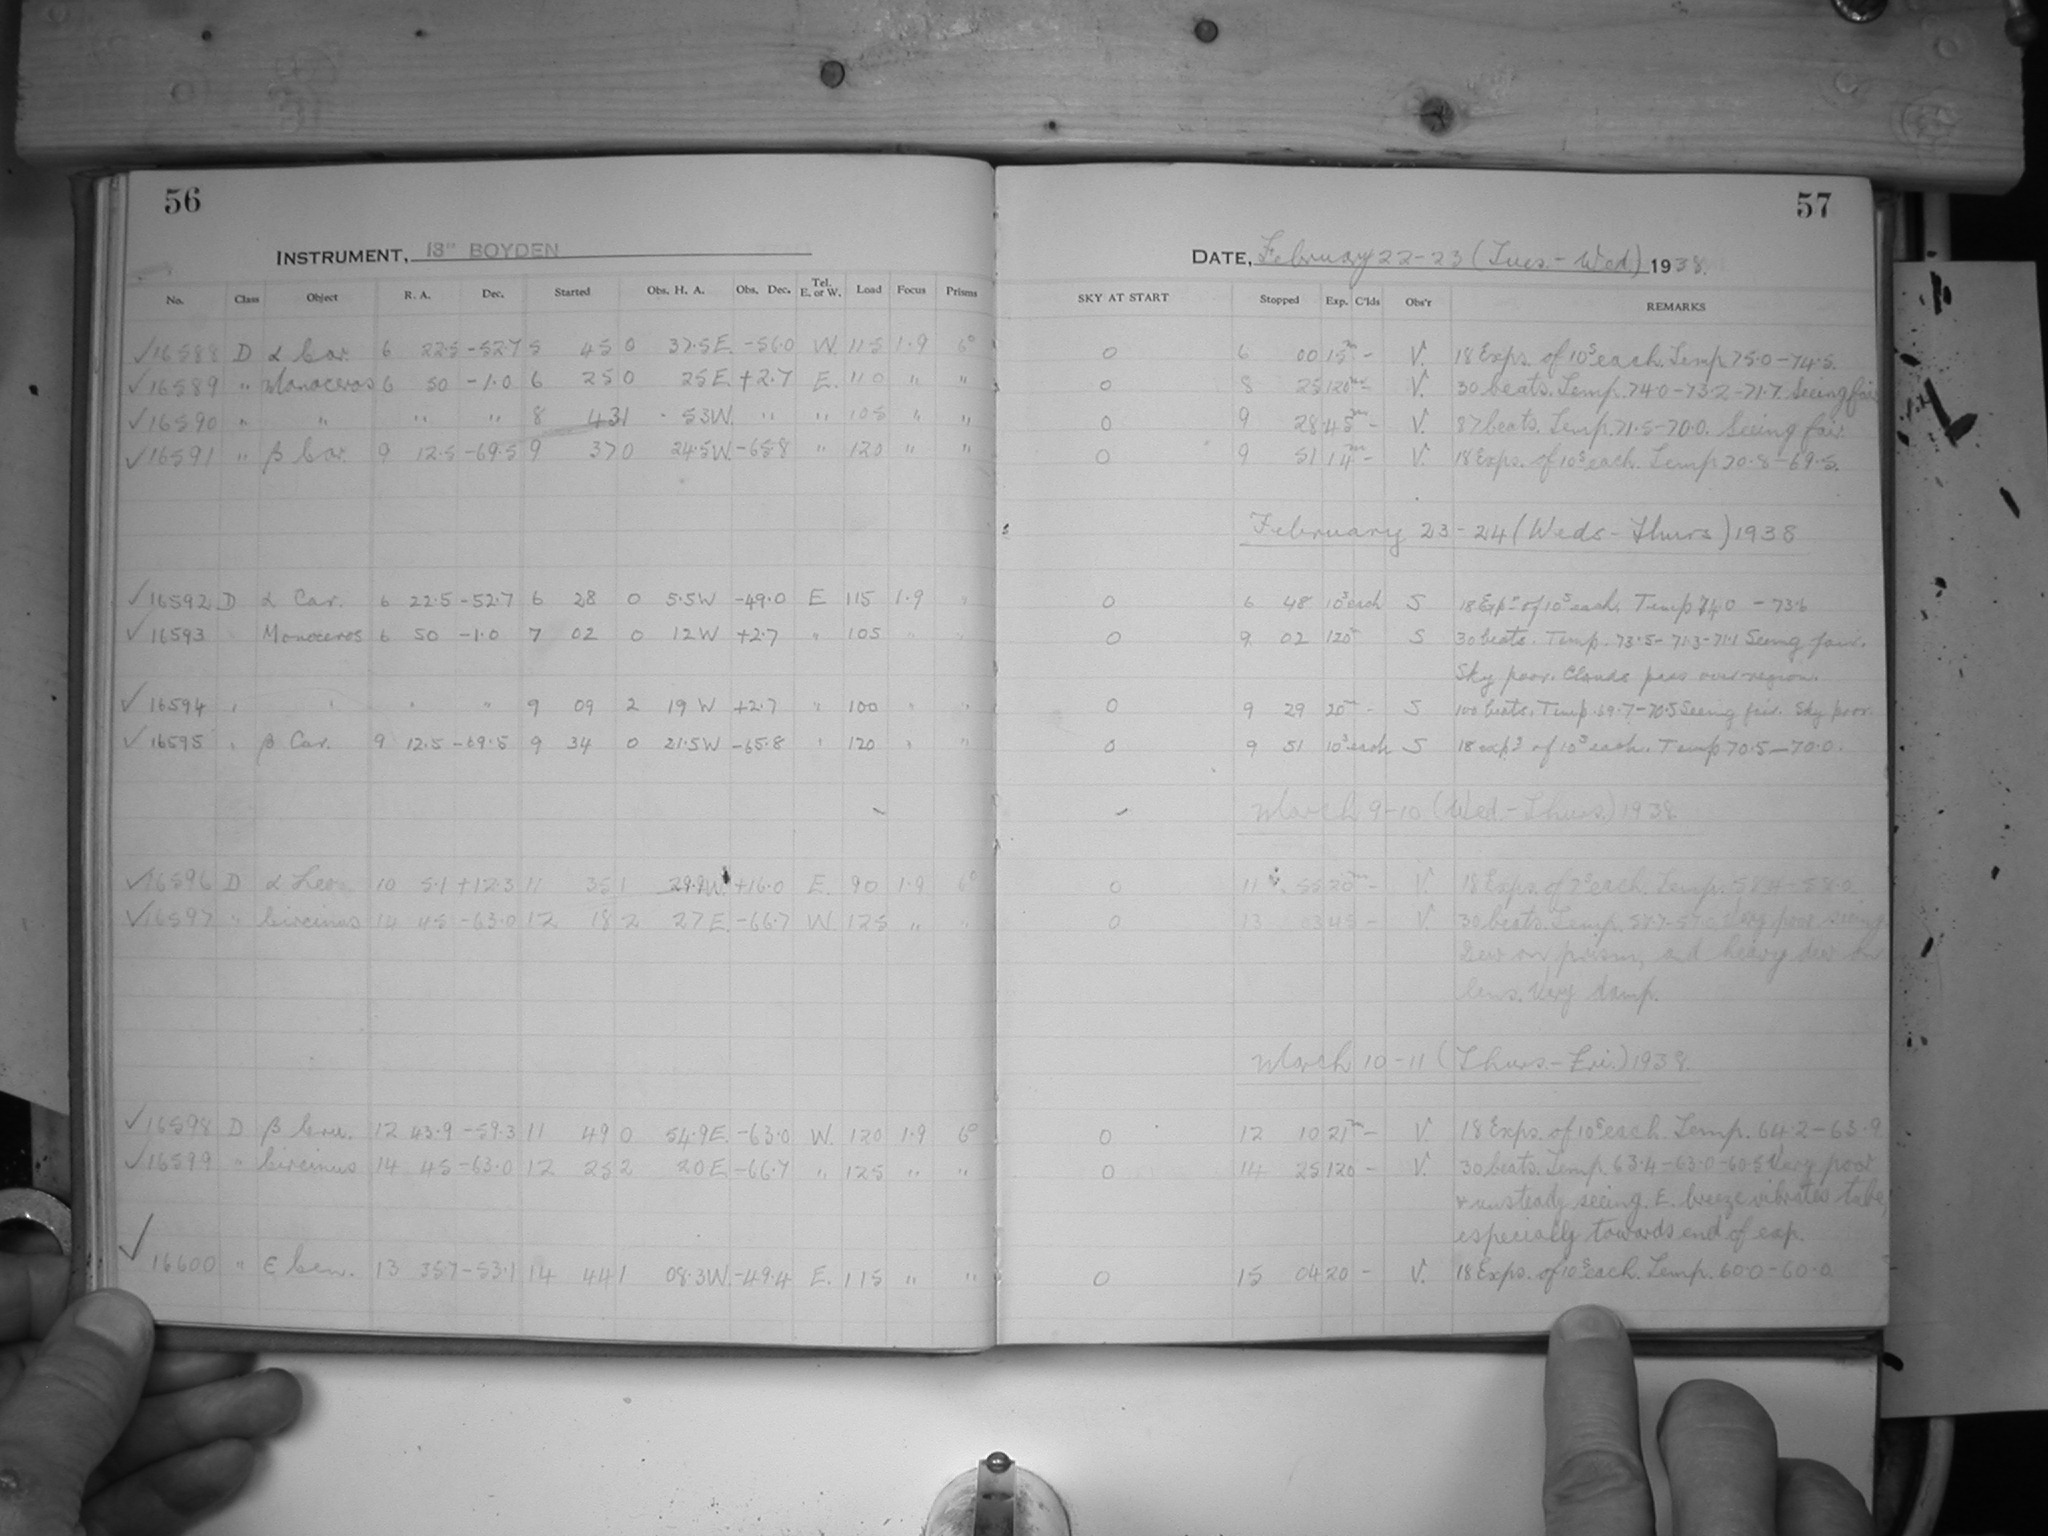 56
57
INSTRUMENT, 13" BOYDEN
DATE, February 22-23 (Tues.- Wed) 1938.
No. Class Object R. A. Dec. Started Obs. H. A. Obs. Dec. Tel. E. or W. Load Focus Prisms SKY AT START Stopped Exp. C'lds Obs'r REMARKS
✓16588 D α Car. 6 22.5 -52.7 5 45 0 37.5 E. -56.0 W. 115 1.9 6° 0 6 00 15m - V. 18 Exps. of 10s each. Temp 75.0-74.5.
✓16589 " Monoceros 6 50 -1.0 6 25 0 25 E +2.7 E. 110 " " 0 8 25 120m - V. 30 beats. Temp. 74.0-73.2-71.7. Seeing fair
✓16590 " " " " 8 43 1 53 W. " " 105 " " 0 9 28 45m - V. 87 beats. Temp. 71.5-70.0. Seeing fair
✓16591 " β Car. 9 12.5 -69.5 9 37 0 24.5 W. -65.8 " 120 " " 0 9 51 14m - V. 18 Exps. of 10s each. Temp 70.8-69.5.
February 23-24 (Weds-Thurs) 1938
✓16592 D α Car. 6 22.5 -52.7 6 28 0 5.5 W -49.0 E 115 1.9 " 0 6 48 10s each S 18 Exps of 10s each. Temp 74.0 - 73.6
✓16593 Monoceros 6 50 -1.0 7 02 0 12 W +2.7 " 105 " " 0 9 02 120m S 30 beats. Temp. 73.5-71.3-71.1 Seeing fair.
Sky poor. Clouds pass over region.
✓16594 " " " " 9 09 2 19 W +2.7 " 100 " " 0 9 29 20m - S 100 beats. Temp. 69.7-70.5 Seeing fair. Sky poor.
✓16595 " β Car. 9 12.5 -69.5 9 34 0 21.5 W -65.8 " 120 " " 0 9 51 10s each S 18 exps of 10s each. Temp 70.5-70.0.
March 9-10 (Wed.-Thurs.) 1938
✓16596 D α Leo. 10 5.1 +12.3 11 35 1 29.9 W. +16.0 E. 90 1.9 6° 0 11 55 20m - V. 18 Exps. of 7s each. Temp. 58.4-58.0
✓16597 " Circinus 14 45 -63.0 12 18 2 27 E. -66.7 W. 125 " " 0 13 03 45 - V. 30 beats. Temp. 58.7-57.0 Very poor seeing
Dew on prism, and heavy dew on
lens. Very damp.
March 10-11 (Thurs.-Fri.) 1938.
✓16598 D β Cru. 12 43.9 -59.3 11 49 0 54.9 E. -63.0 W. 120 1.9 6° 0 12 10 21m - V. 18 Exps. of 10s each. Temp. 64.2-63.9
✓16599 " Circinus 14 45 -63.0 12 25 2 20 E -66.7 " 125 " " 0 14 25 120 - V. 30 beats. Temp. 63.4-63.0-60.5 Very poor
& unsteady seeing. E. breeze vibrates tube,
especially towards end of exp.
✓16600 " ε Cen. 13 35.7 -53.1 14 44 1 08.3 W. -49.4 E. 115 " " 0 15 04 20 - V. 18 Exps. of 10s each. Temp. 60.0-60.0